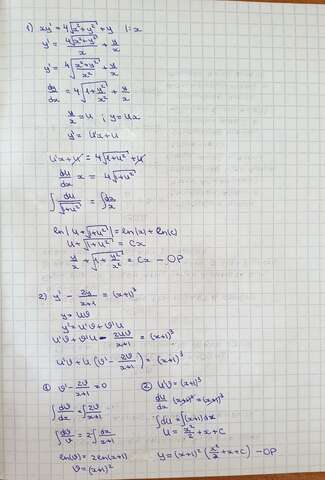 1) xy' = 4√(x²+y²) + y |:x
y' = 4√(x²+y²)/x + y/x
y' = 4√((x²+y²)/x²) + y/x
dy/dx = 4√(1+y²/x²) + y/x
y/x = u ; y = ux
y' = u'x + u
u'x + u = 4√(1+u²) + u
du/dx x = 4√(1+u²)
∫ du/√(1+u²) = ∫ dx/x
ln|u+√(1+u²)| = ln|x| + ln|c|
u + √(1+u²) = Cx
y/x + √(1+y²/x²) = Cx - OP
2) y' - 2y/(x+1) = (x+1)³
y = uv
y' = u'v + v'u
u'v + v'u - 2uv/(x+1) = (x+1)³
u'v + u(v' - 2v/(x+1)) = (x+1)³
① v' - 2v/(x+1) = 0
∫ dv/dx = ∫ 2v/(x+1)
∫ dv/v = 2∫ dx/(x+1)
ln(v) = 2ln(x+1)
v = (x+1)²
② u'v = (x+1)³
du/dx (x+1)² = (x+1)³
∫du = ∫(x+1)dx
u = x²/2 + x + C
y = (x+1)² (x²/2 + x + C) - OP